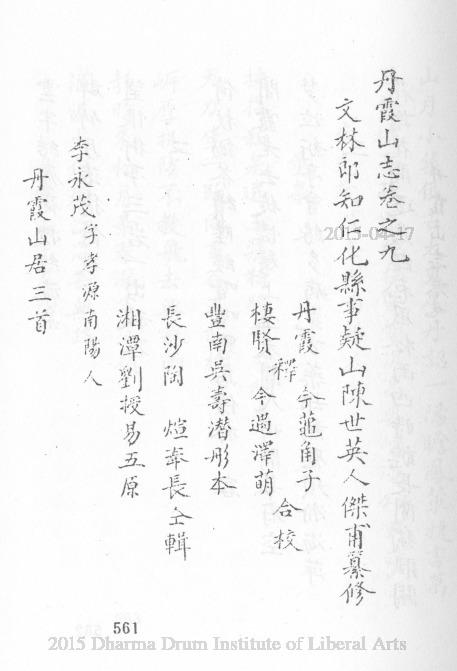 丹霞山志卷之九
文林郎知仁化縣事疑山陳世英人傑甫纂修
丹霞 釋 今黽角子 合校
棲賢 今遇澤萌
豐南吳壽潛彤本
長沙陶煊奉長 仝輯
湘潭劉授易五原
李永茂字孝源南陽人
丹霞山居三首
561
2015-04-17
2015 Dharma Drum Institute of Liberal Arts